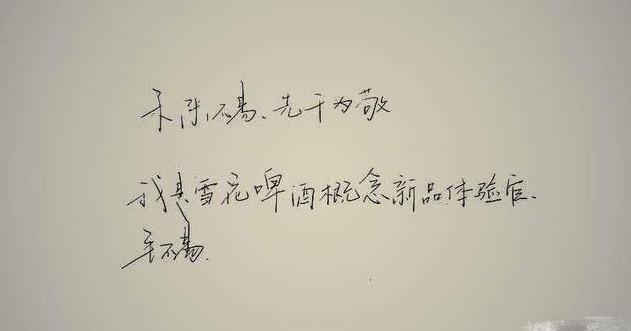 不易、先干为敬
我是雪花啤酒概念新品体验官.
毛不易.